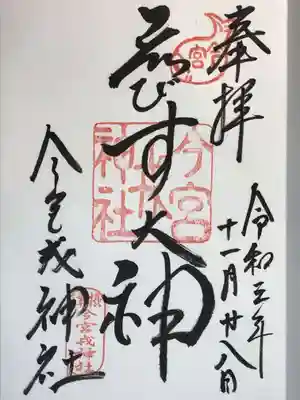 奉拝
令和
年
十一月廿八日
ゑびす大神
今宮戎神社
今宮
戎
神社
今宮戎神社